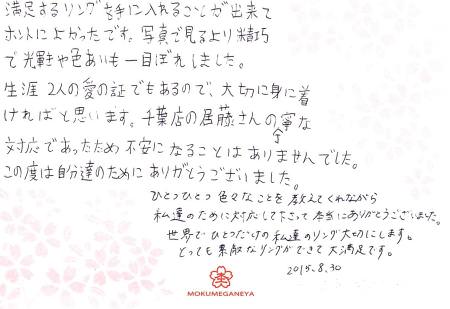 満足するリングを手に入れることが出来て
ホントによかったです。写真で見るより精巧
で光輝や色あいも一目ぼれしました。
生涯2人の愛の証でもあるので、大切に身に着
ければと思います。千葉店の居藤さんの寧な
丁
対応であったため不安になることはありませんでした。
この度は自分達のためにありがとうございました。
ひとつひとつ色々なことを教えてくれながら
私達のために対応して下さって本当にありがとうございました。
世界でひとつだけの私達のリング大切にします。
とっても素敵なリングができて大満足です。
2015.8.30
MOKUMEGANEYA